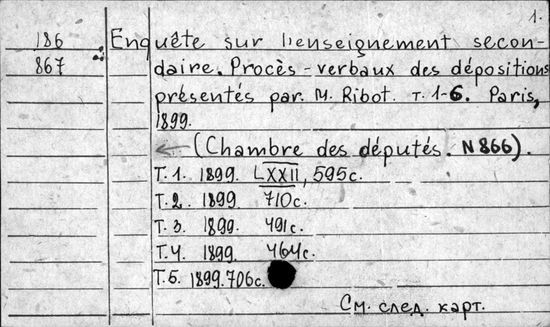 1.
186 Enquête sur l'enseignement secon-
867 daire. Procès-verbaux des dépositions
présentés par. M. Ribot. т. 1-6. Paris,
1899.
← (Chambre des députés. N866).
Т. 1. 1899. LXXII, 595с.
Т. 2. 1899. 710с.
Т. 3. 1899. 491с.
Т. 4. 1899. 464с.
Т. 5. 1899. 706с.
См. след. карт.